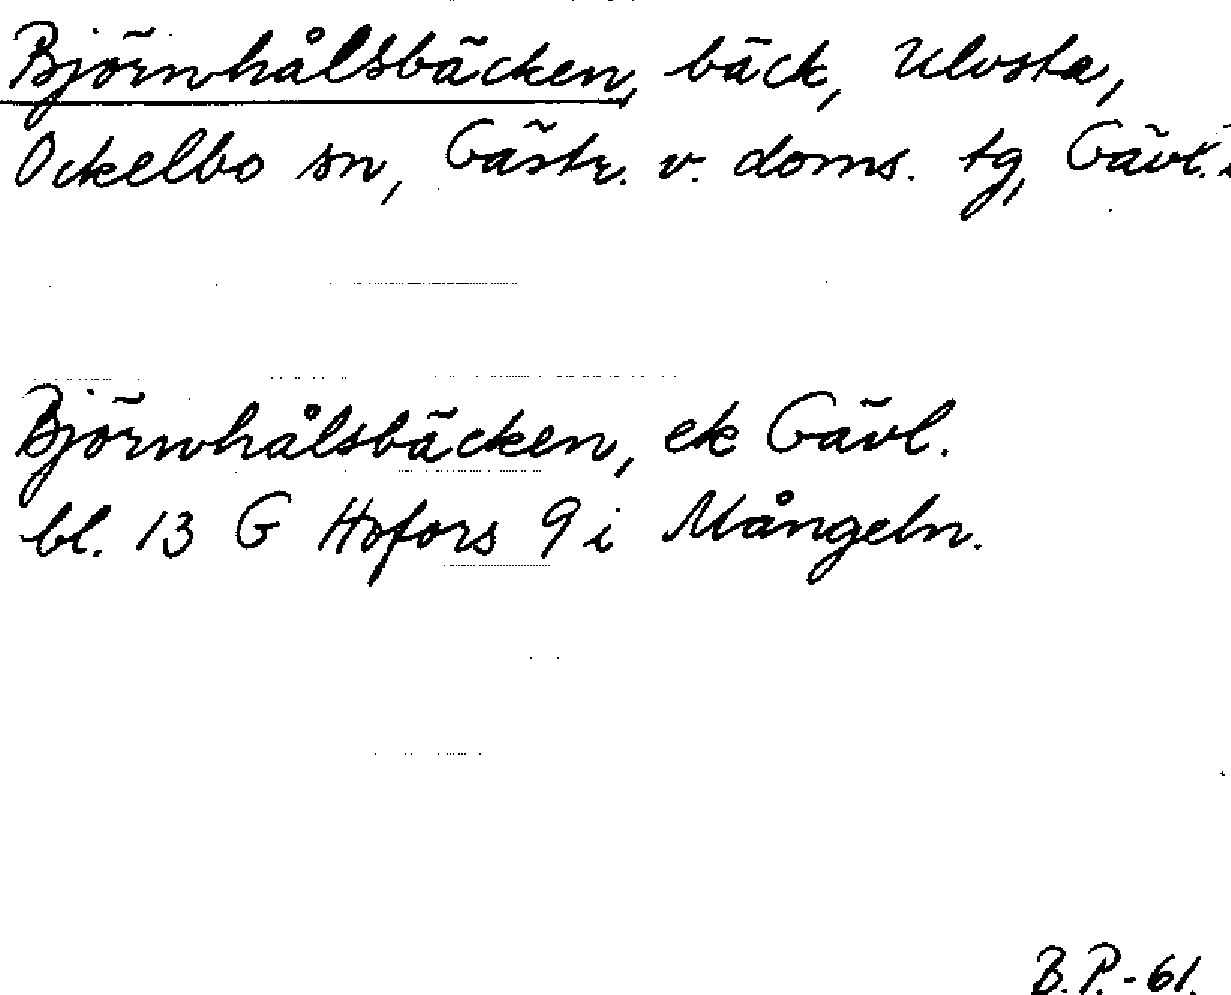 Björnhålsbäcken, bäck, Ulvsta,
Ockelbo sn, Gästr. v. doms. tg, Gävl.
Björnhålsbäcken, ek Gävl.
bl. 13 G Hofors 9 i Mångeln.
B.P.-61.